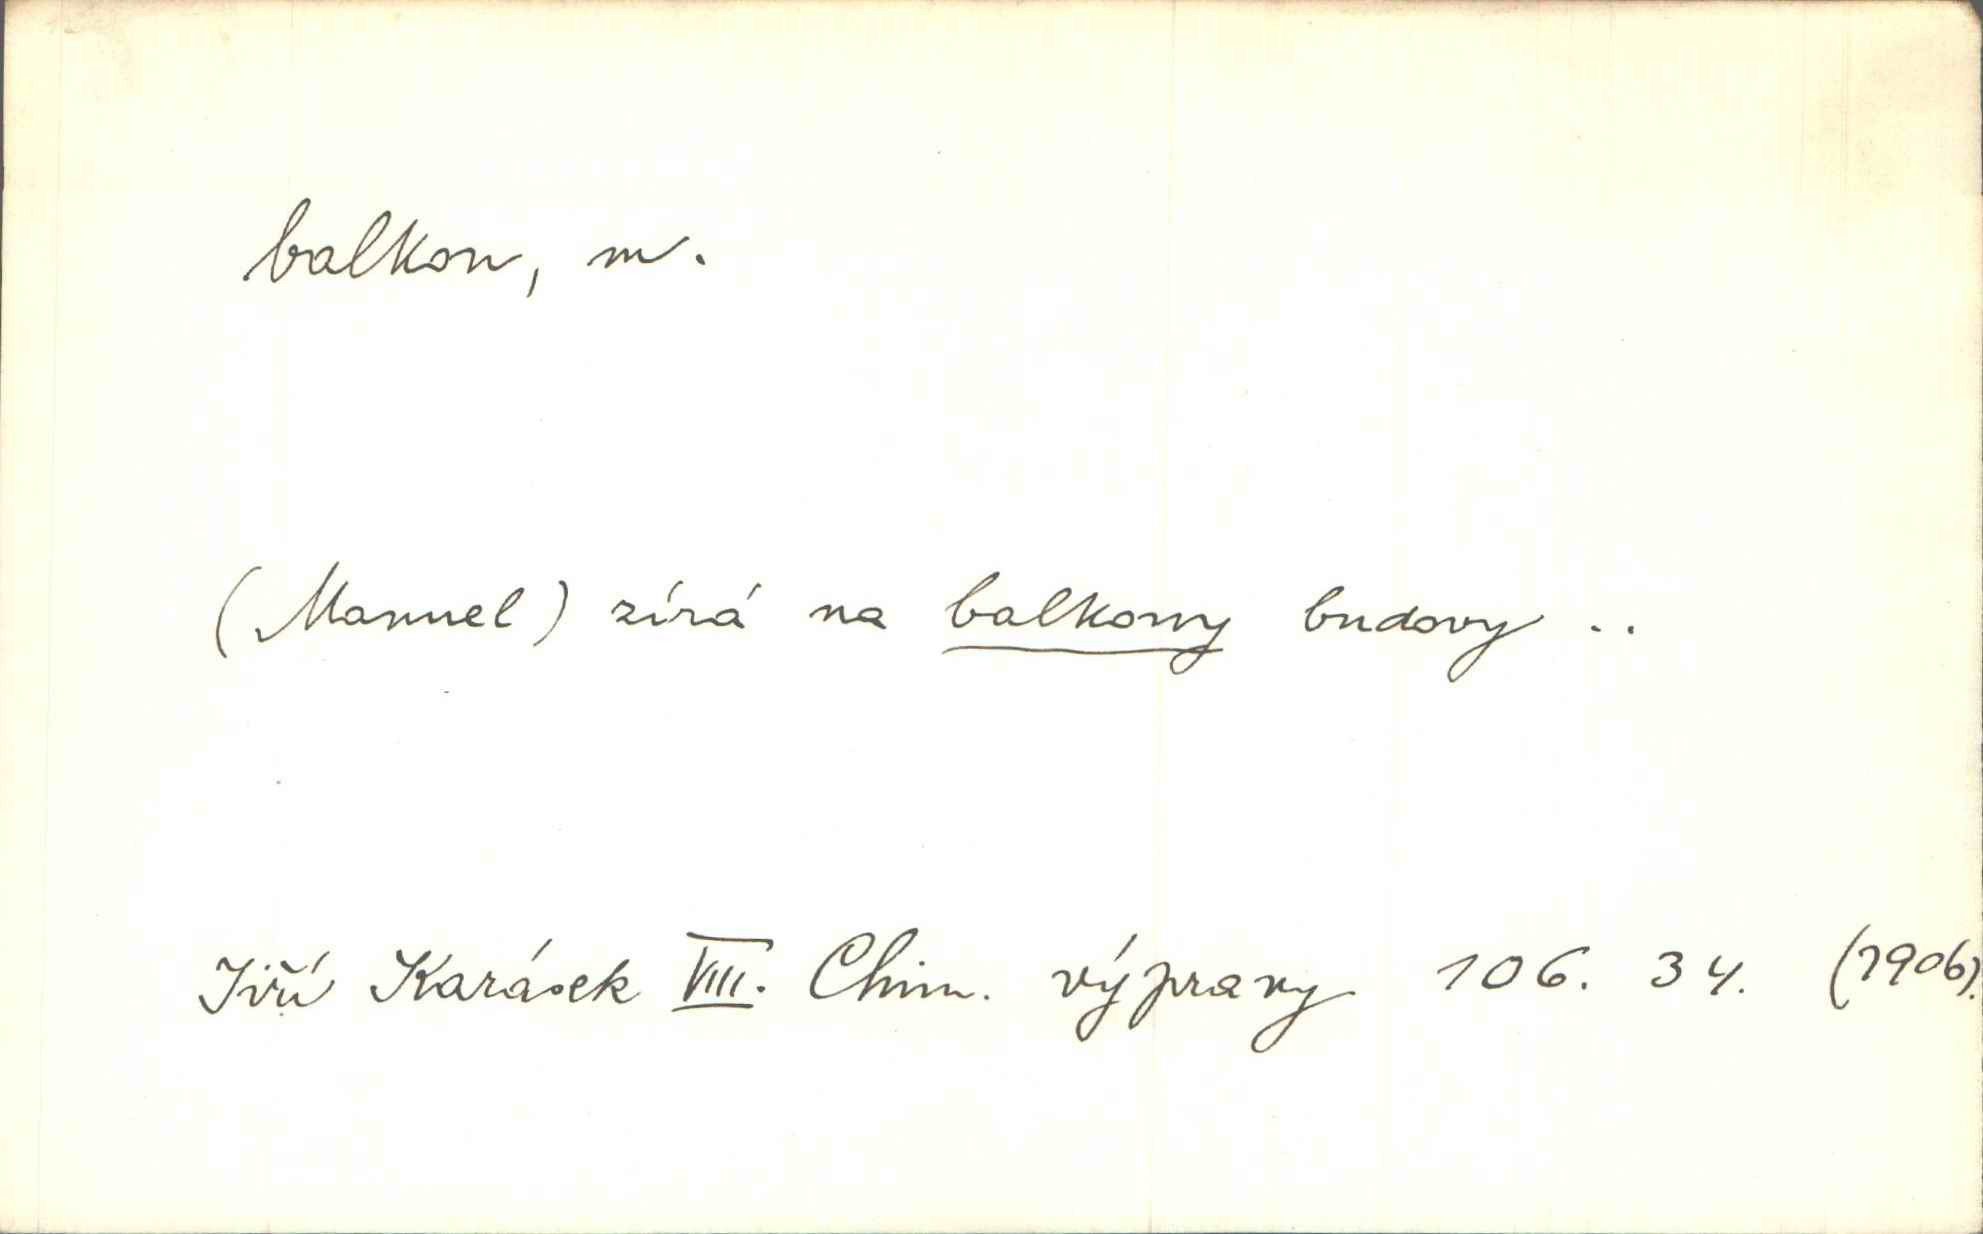 balkon, m.
(Manuel) zírá na balkony budovy ..
Jiří Karásek VIII. Chim. výpravy 106. 34. (1906).